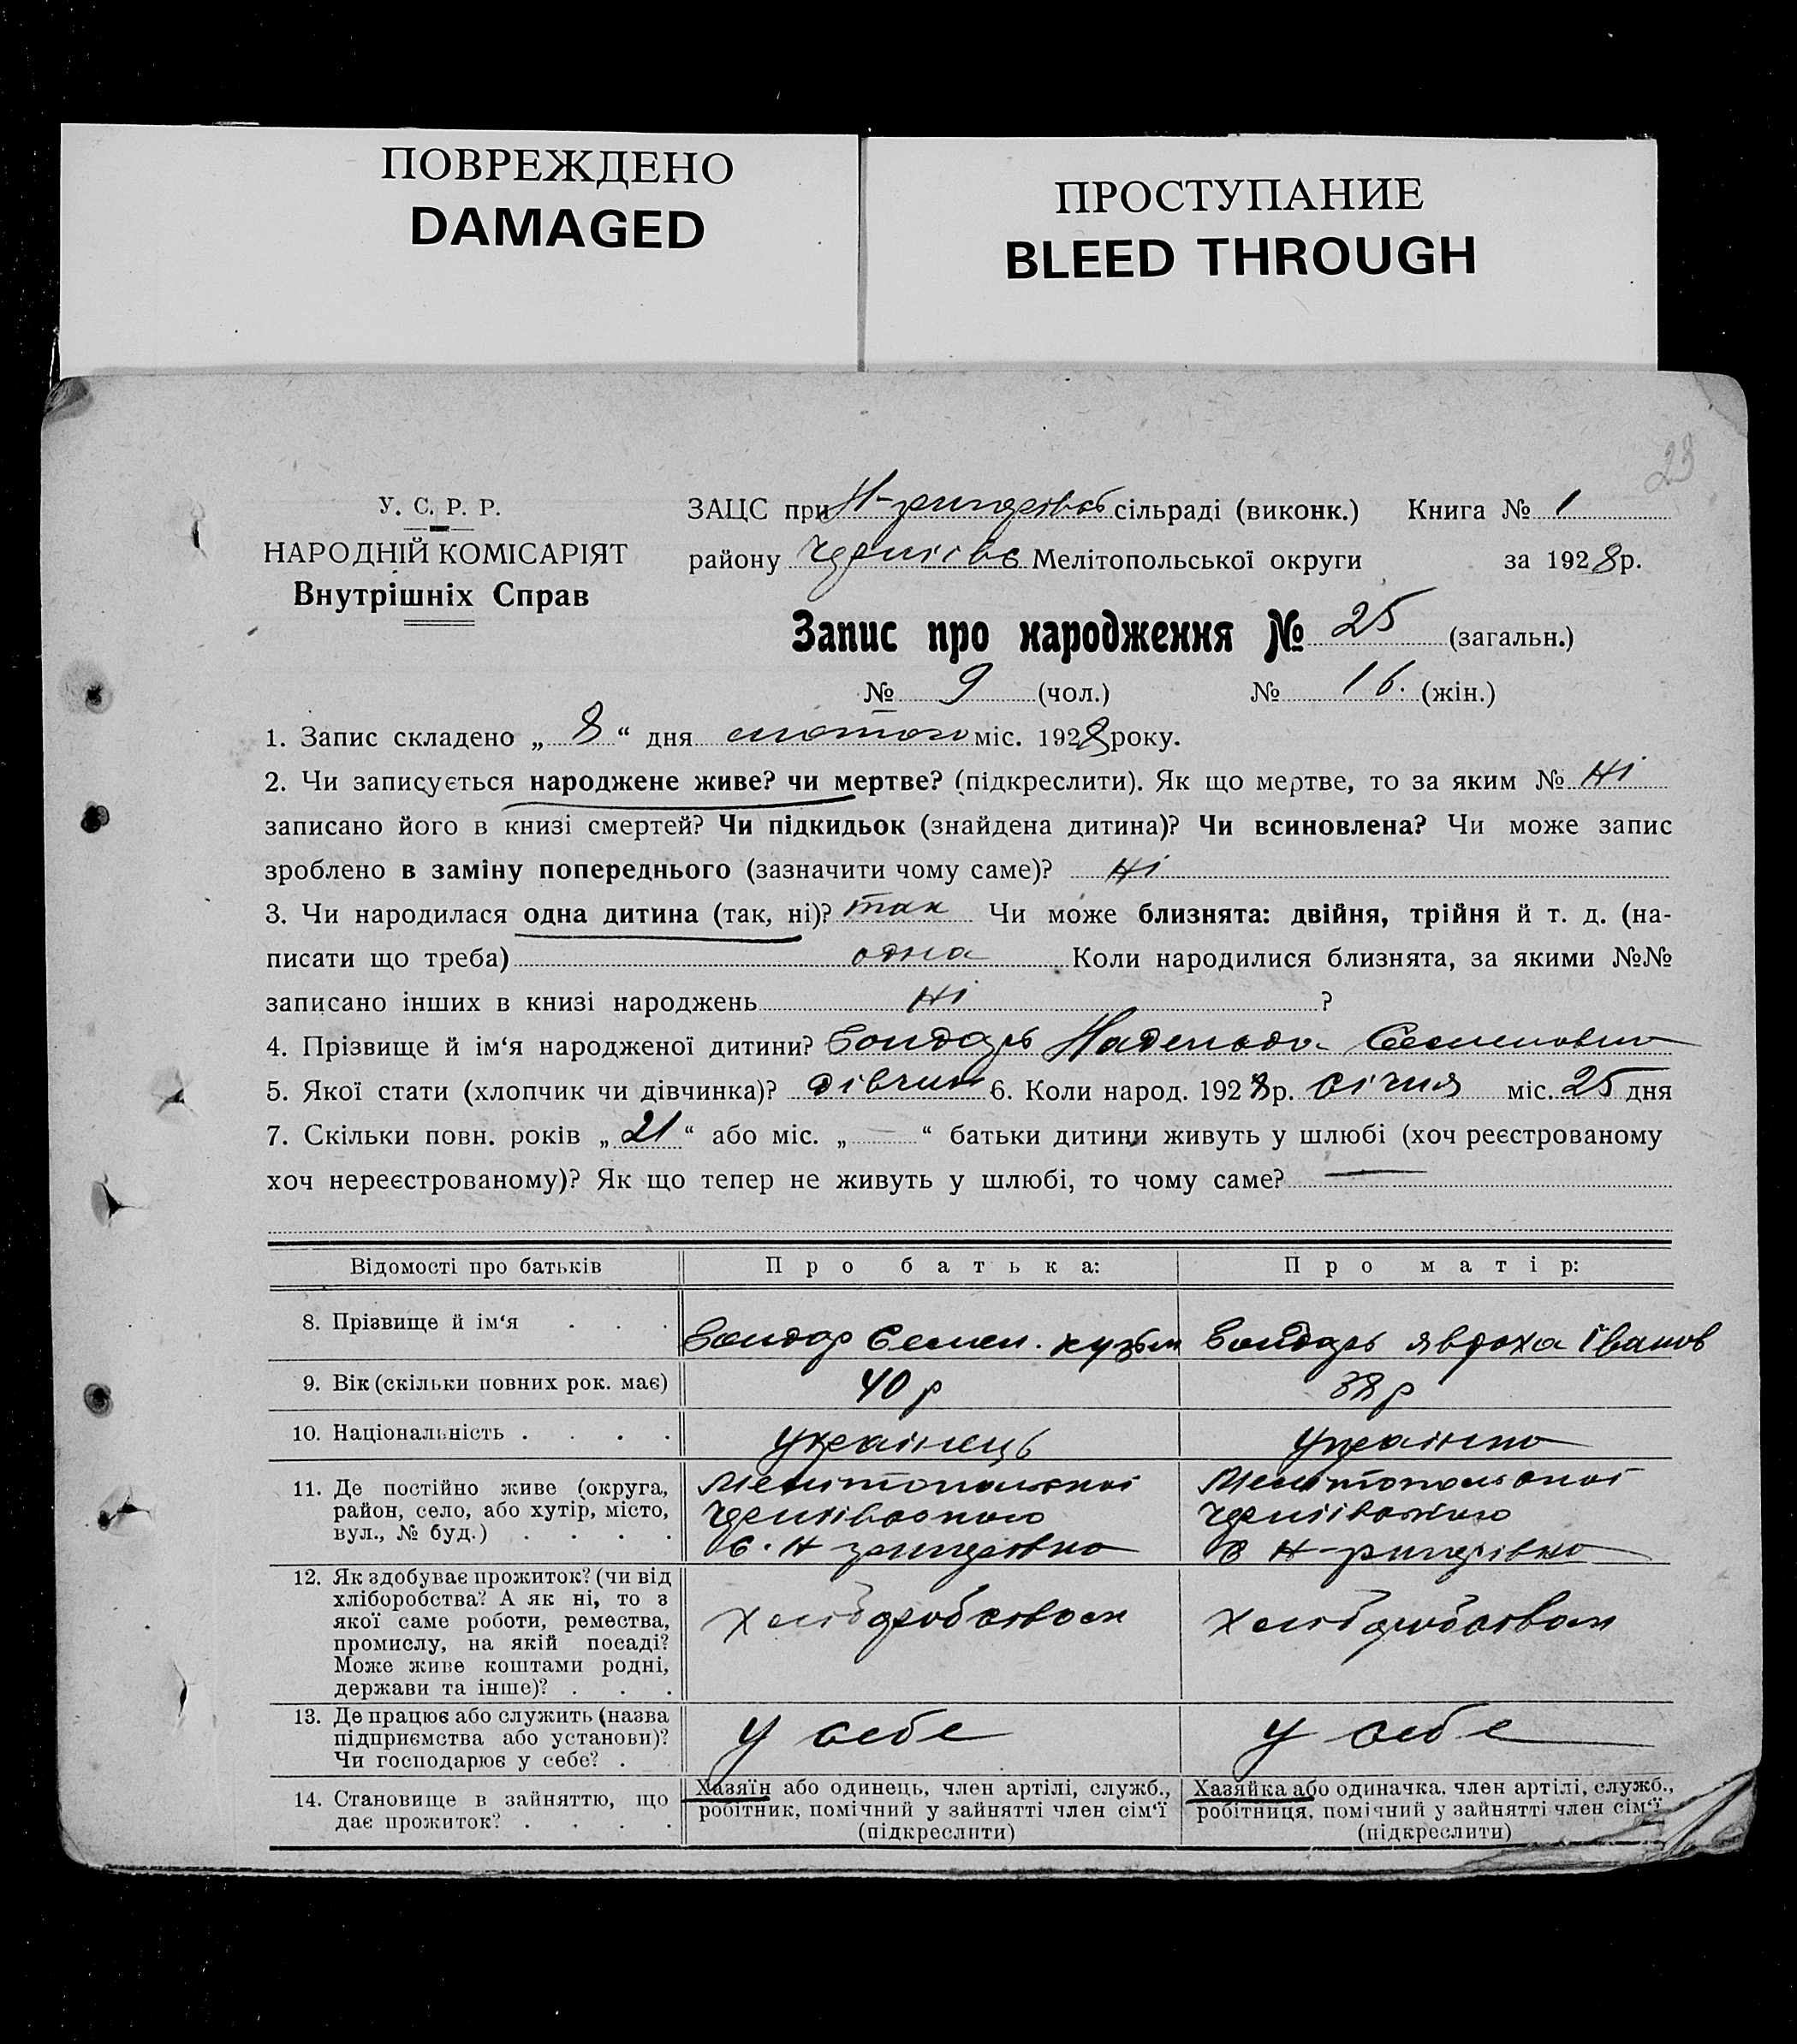 ПОВРЕЖДЕНО
DAMAGED
ПРОСТУПАНИЕ
BLEED THROUGH
23
У. С. Р. Р.
НАРОДНІЙ КОМІСАРІЯТ
Внутрішніх Справ
ЗАЦС при сільраді (виконк.) Книга № 1
району Мелітопольської округи за 1928р.
Запис про народження № 25 (загальн.)
№ 9 (чол.) № 16. (жін.)
1. Запис складено „ 8 “ дня лютого міс. 1928 року.
2. Чи записується народжене живе? чи мертве? (підкреслити). Як що мертве, то за яким № ні
записано його в книзі смертей? Чи підкидьок (знайдена дитина)? Чи всиновлена? Чи може запис
зроблено в заміну попереднього (зазначити чому саме)? ні
3. Чи народилася одна дитина (так, ні)? так Чи може близнята: двійня, трійня й т. д. (на-
писати що треба) одна Коли народилися близнята, за якими №№
записано інших в книзі народжень ні ?
4. Прізвище й ім‘я народженої дитини? Бондарь Надежда Семеновна
5. Якої стати (хлопчик чи дівчинка)? дівчин 6. Коли народ. 1928р. січня міс. 25 дня
7. Скільки повн. років „ 21 “ або міс. „ — “ батьки дитини живуть у шлюбі (хоч реєстрованому
хоч нереєстрованому)? Як що тепер не живуть у шлюбі, то чому саме? —
Відомості про батьків Про батька: Про матір:
8. Прізвище й ім‘я . . . Бондар Семен. Кузьм Бондарь Явдоха Іванов
9. Вік (скільки повних рок. має) 40 р 38 р
10. Національність . . . . українець українка
11. Де постійно живе (округа, Мелітопольської Мелітопольської
район, село, або хутір, місто,
вул., № буд.) . . . .
12. Як здобуває прожиток? (чи від
хліборобства? А як ні, то з
якої саме роботи, ремества, хліборобством хліборобством
промислу, на якій посаді?
Може живе коштами родні,
держави та інше)? . . .
13. Де працює або служить (назва
підприємства або установи)? у себе у себе
Чи господарює у себе? .
14. Становище в зайняттю, що
дає прожиток? . . . .
Хазяїн або одинець, член артілі, служб.,
робітник, помічний у зайнятті член сім‘ї
(підкреслити)
Хазяйка або одиначка, член артілі, служб.,
робітниця, помічний у зайнятті член сім‘ї
(підкреслити)